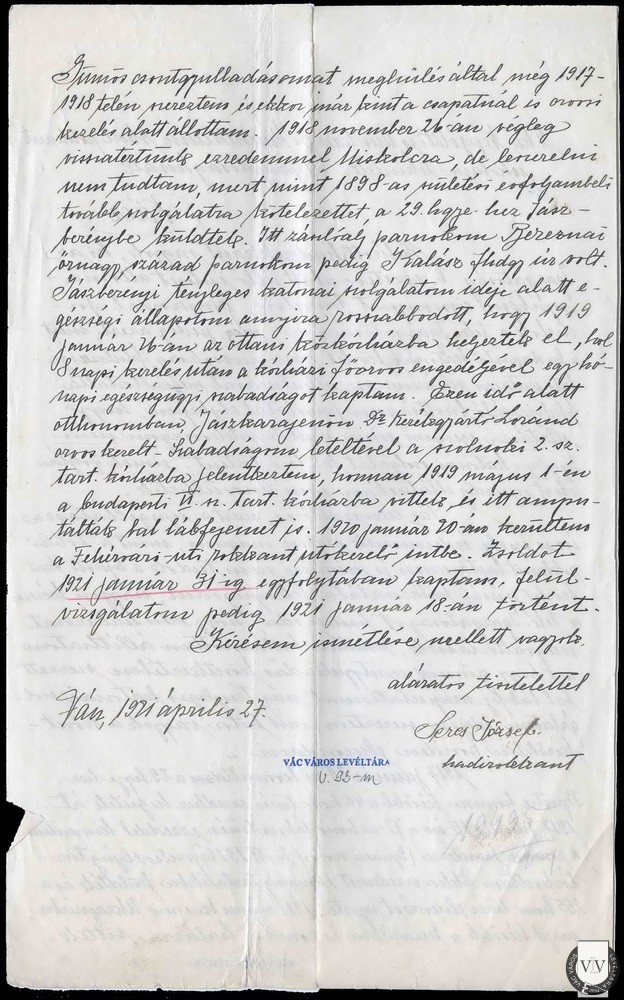 Gümős csontgyulladásomat meghűlés által még 1917-
1918 telén szereztem és ekkor már kint a csapatnál is orvosi
kezelés alatt állottam. 1918 november 26-án végleg
visszatértünk ezredemmel Miskolcra, de leszerelni
nem tudtam, mert mint 1898-as születési évfolyambeli
tovább szolgálatra kötelezettet a 29. hgye-hez Jász-
berénybe küldtek. Itt zászlóalj parnokom Bereznai
őrnagy, század parnokom pedig Kalász fhdgy úr volt.
Jászberényi tényleges katonai szolgálatom ideje alatt e-
gészségi állapotom annyira rosszabbodott, hogy 1919
január 26-án az ottani közkórházba helyeztek el, hol
8 napi kezelés után a kórházi főorvos engedélyével egy hó-
napi egészségügyi szabadságot kaptam. Ezen idő alatt
otthonomban, Jászkarajenőn Dr Kerékgyártó Loránd
orvos kezelt. Szabadságom leteltével a szolnoki 2. sz.
tart. kórházba jelentkeztem, honnan 1919 május 1-én
a budapesti VI. sz. tart. kórházba vittek, és itt ampu-
tálták bal lábfejemet is. 1920 január 20-án kerültem
a Fehérvári-uti rokkant utókezelő intbe. Zsoldot
1921 január 31-ig egyfolytában kaptam, felül-
vizsgálatom pedig 1921 január 18-án történt.
Kérésem ismétlése mellett vagyok
alázatos tisztelettel
1921 április 27.
Seres József
hadirokkant
VÁC VÁROS LEVÉLTÁRA
V. 93-m
VÁC VÁROS LEVÉLTÁRA